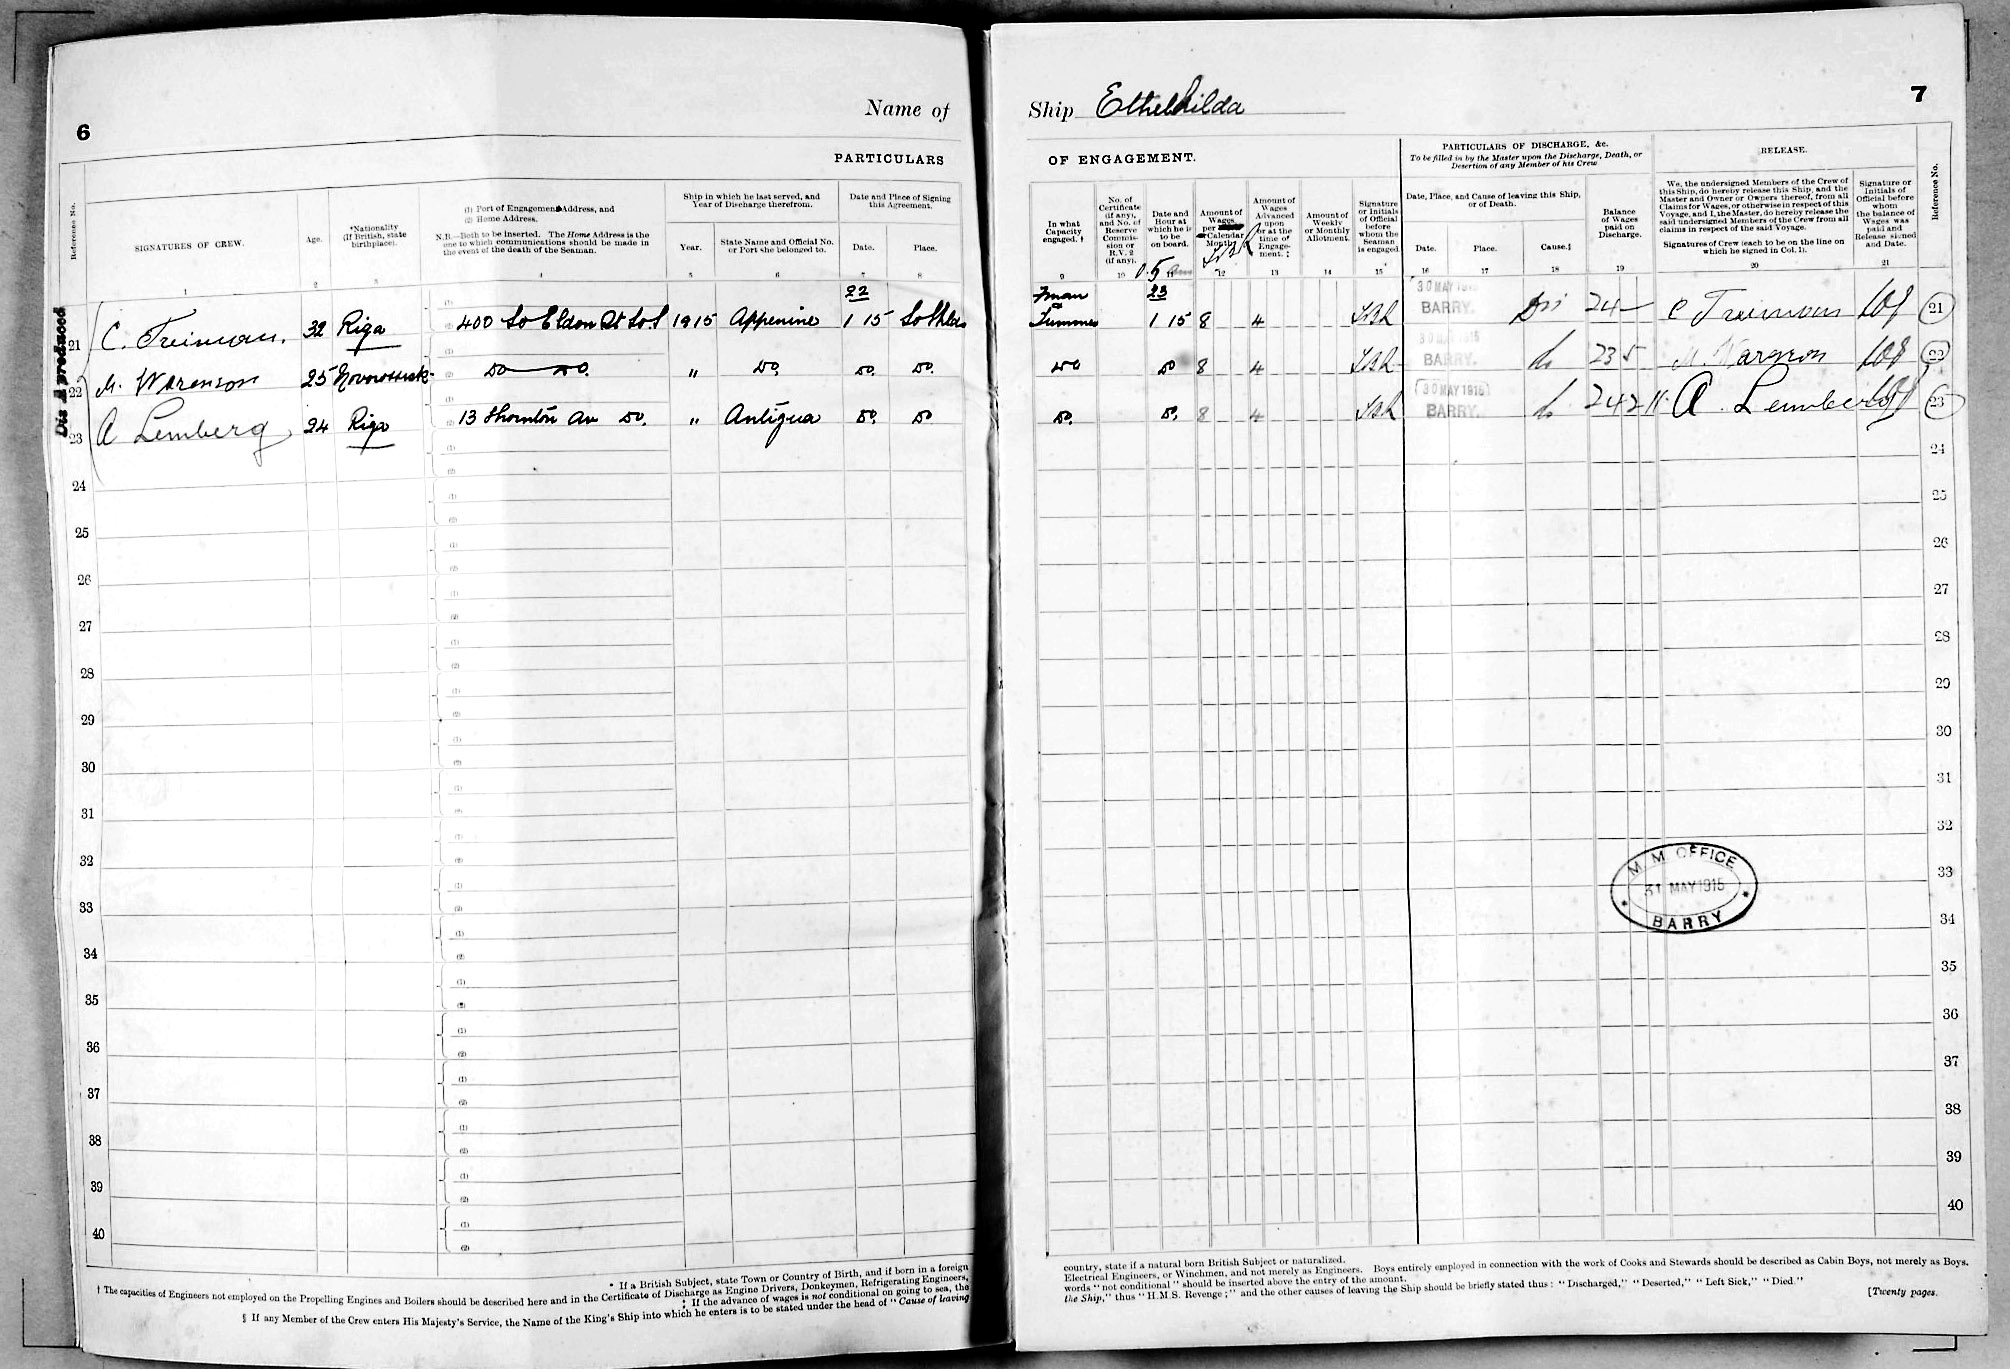 6
Name of
PARTICULARS
Reference No.
SIGNATURES OF CREW.
Age.
*Nationality
(If British, state
birthplace).
(1) Port of Engagement Address, and
(2) Home Address.
N.B.—Both to be inserted. The Home Address is the
one to which communications should be made in
the event of the death of the Seaman.
Ship in which he last served, and
Year of Discharge therefrom.
Year.
State Name and Official No.
or Port she belonged to.
Date and Place of Signing
this Agreement.
Date.
Place.
1 2 3 4 5 6 7 8
22
Dis A produced
21 C. Treiman. 32 Riga 400 So Eldon St So S 1915 Appenine 1 15 So Shlds
22 M. Warenson 25 Novorossisk Do Do " Do. Do. Do.
23 A Lemberg 24 Riga 13 Thornton Av Do. " Antigua Do. Do
24
25
26
27
28
29
30
31
32
33
34
35
36
37
38
39
40
* If a British Subject, state Town or Country of Birth, and if born in a foreign
† The capacities of Engineers not employed on the Propelling Engines and Boilers should be described here and in the Certificate of Discharge as Engine Drivers, Donkeymen, Refrigerating Engineers,
‡ If the advance of wages is not conditional on going to sea, the
§ If any Member of the Crew enters His Majesty's Service, the Name of the King's Ship into which he enters is to be stated under the head of "Cause of leaving
7
Ship Ethelhilda
OF ENGAGEMENT.
PARTICULARS OF DISCHARGE, &c.
To be filled in by the Master upon the Discharge, Death, or
Desertion of any Member of his Crew
RELEASE.
In what
Capacity
engaged. †
No. of
Certificate
(if any),
and No. of
Reserve
Commis-
sion or
R.V. 2
(if any).
Date and
Hour at
which he is
to be
on board.
Amount of
Wages
per
Calendar
Month.
Amount of
Wages
Advanced
upon
or at the
time of
Engage-
ment. ‡
Amount of
Weekly
or Monthly
Allotment.
Signature
or Initials
of Official
before
whom the
Seaman
is engaged
Date, Place, and Cause of leaving this Ship,
or of Death.
Date.
Place.
Cause.§
Balance
of Wages
paid on
Discharge.
We, the undersigned Members of the Crew of
this Ship, do hereby release this Ship, and the
Master and Owner or Owners thereof, from all
Claims for Wages, or otherwise in respect of this
Voyage, and I, the Master, do hereby release the
said undersigned Members of the Crew from all
claims in respect of the said Voyage.
Signatures of Crew (each to be on the line on
which he signed in Col. 1).
Signature or
Initials of
Official before
whom
the balance of
Wages was
paid and
Release signed
and Date.
Reference No.
9 10 11 12 13 14 15 16 17 18 19 20 21
Fman 23 30 MAY 1915
Trimmer 1 15 8 4 BARRY. Dis 24 — C Treiman 21
30 MAY 1915
Do Do 8 4 BARRY. 23 5 22
30 MAY 1915
Do. Do. 8 4 BARRY. 24 2 11 A. Lemberg 23
24
25
26
27
28
29
30
31
32
33
34
35
36
37
38
39
40
M. M. OFFICE
31 MAY 1915
BARRY
country, state if a natural born British Subject or naturalized.
Electrical Engineers, or Winchmen, and not merely as Engineers. Boys entirely employed in connection with the work of Cooks and Stewards should be described as Cabin Boys, not merely as Boys.
words "not conditional" should be inserted above the entry of the amount.
the Ship," thus "H.M.S. Revenge;" and the other causes of leaving the Ship should be briefly stated thus: "Discharged," "Deserted," "Left Sick," "Died."
[Twenty pages.